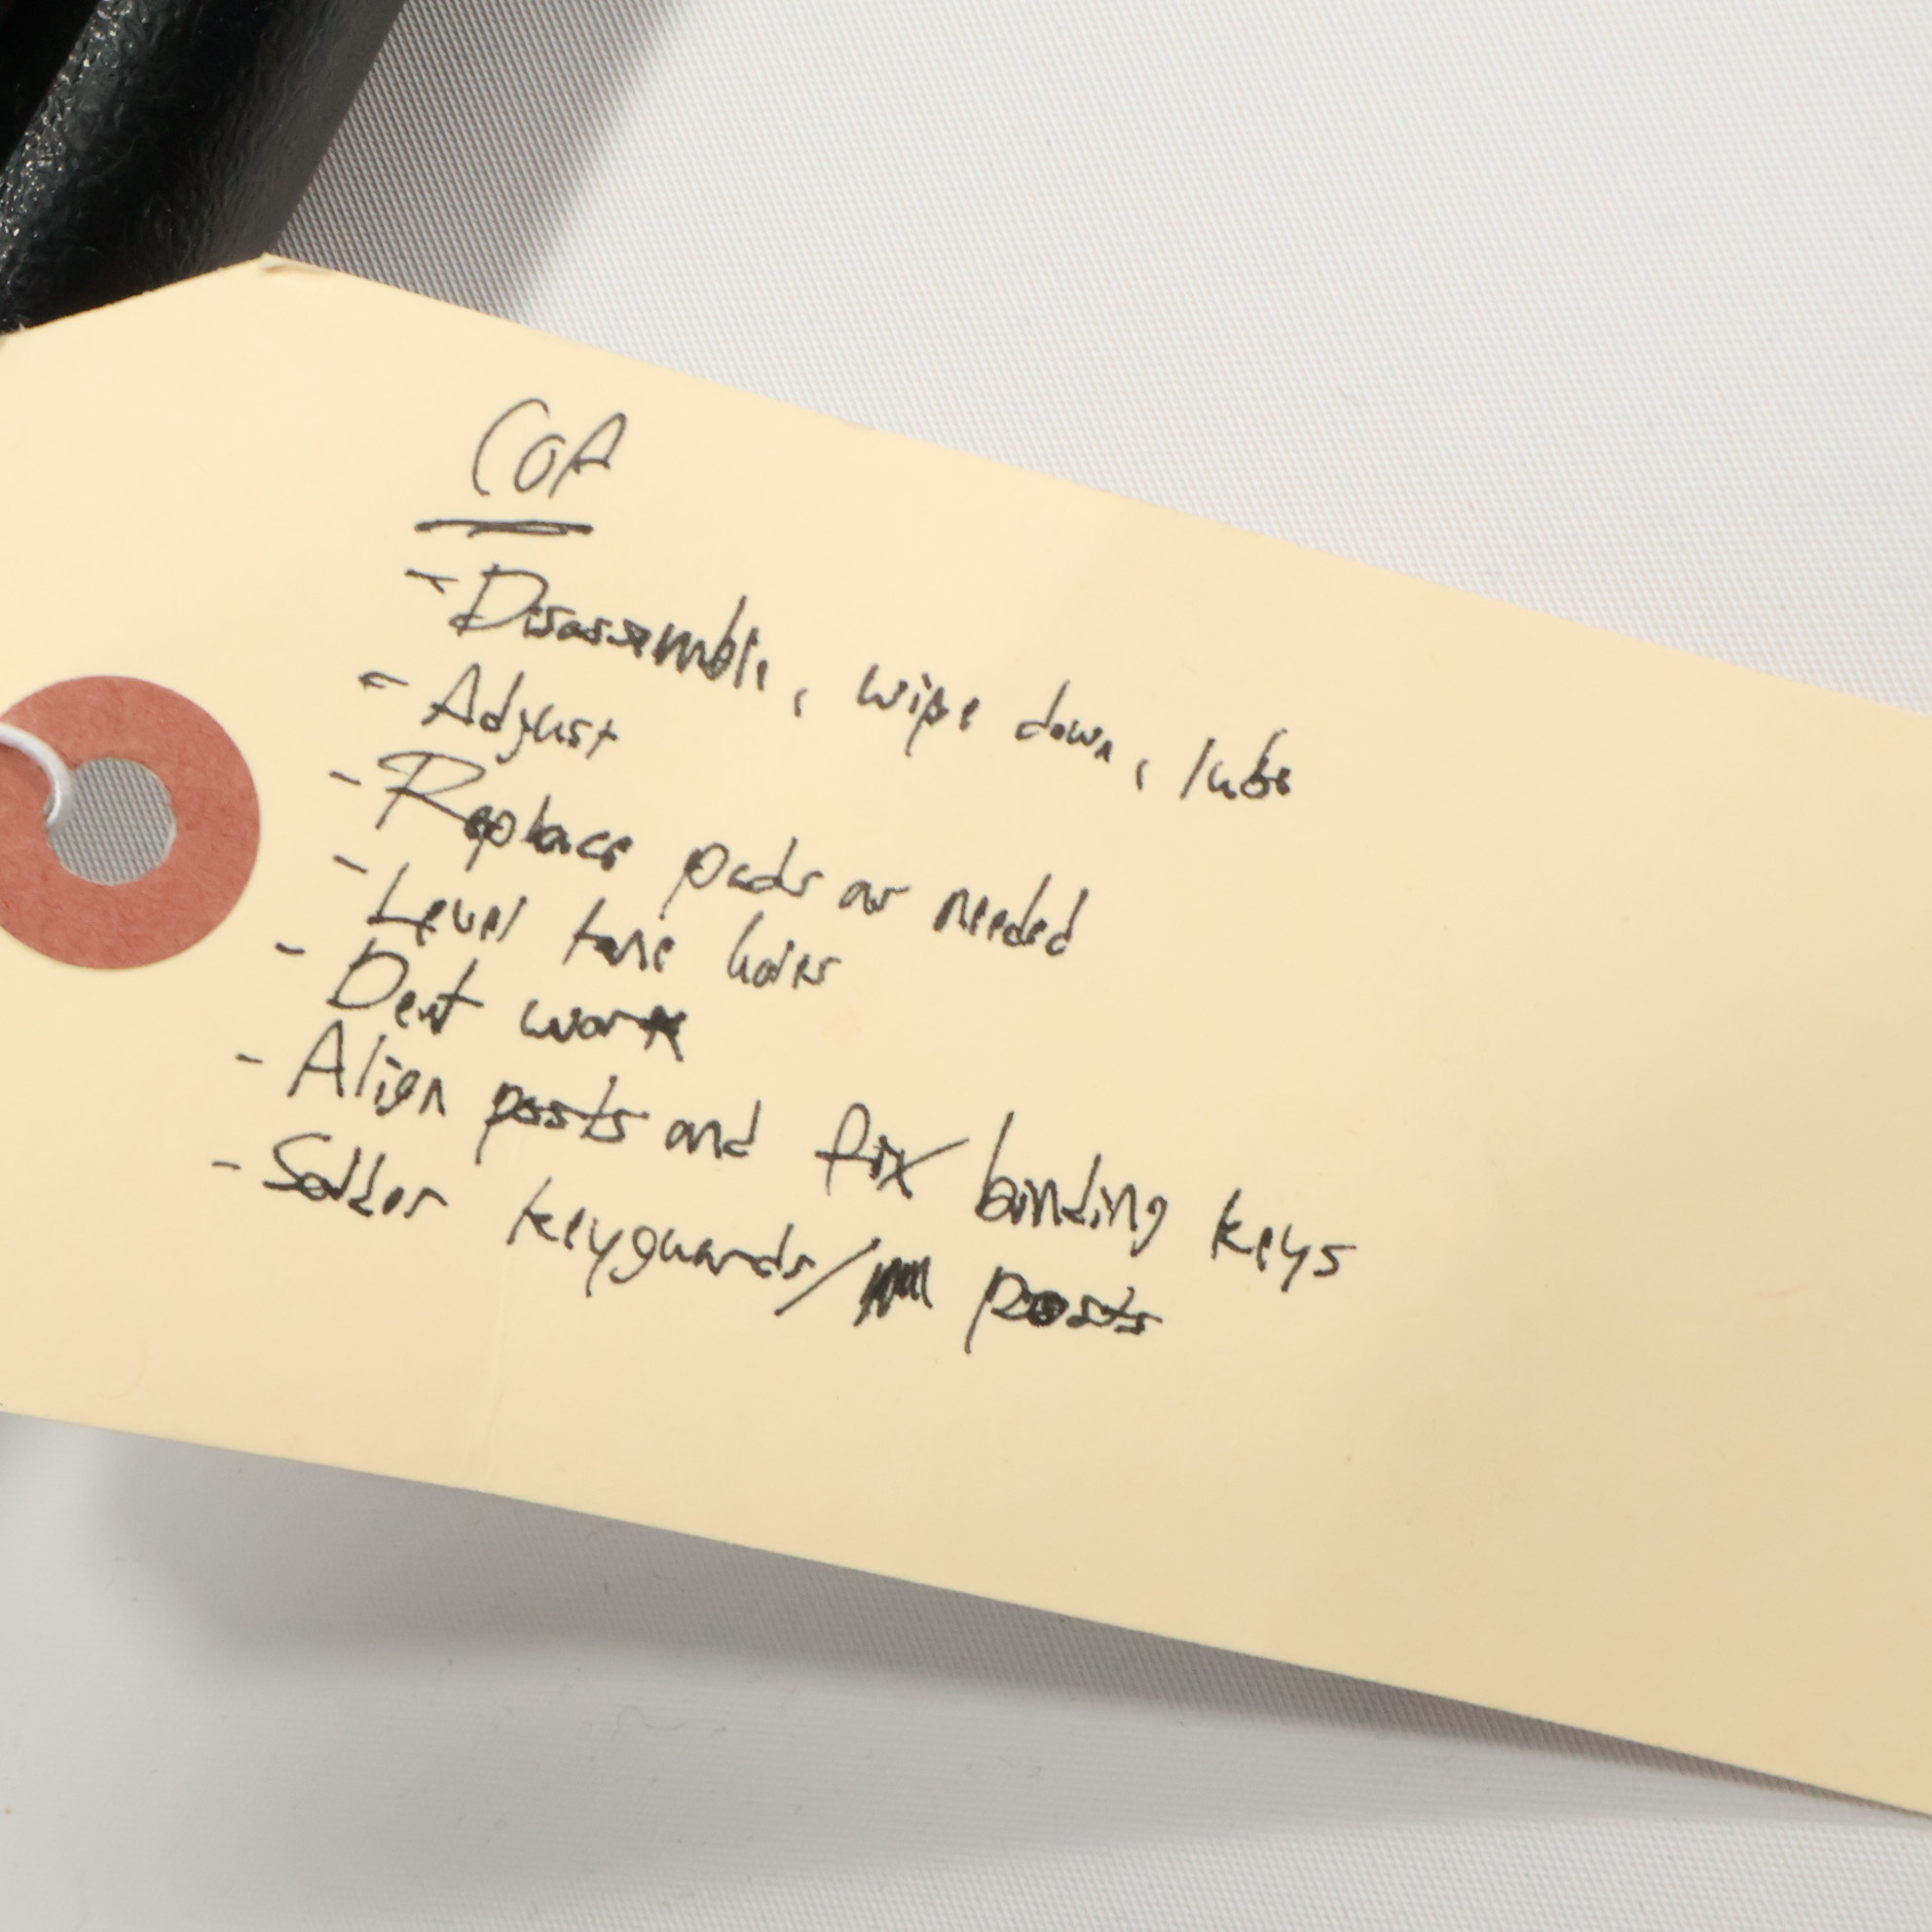 COA
- Disassemble, wipe down, lube
- Adjust
- Replace pads as needed
- Level tone holes
- Dent work
- Align posts and fix binding keys
- Solder keyguards/ posts